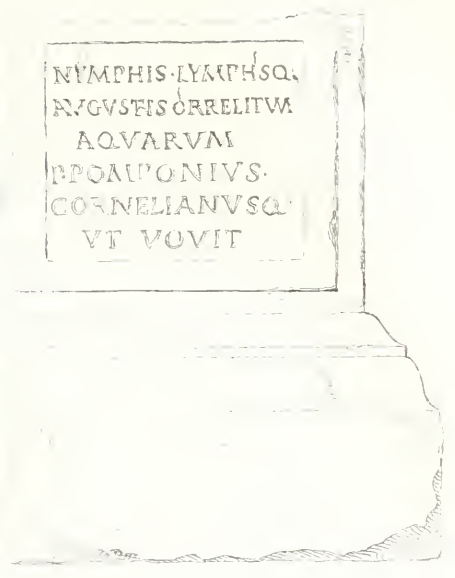 NYMPHIS·LYMPHISQ·
AVGVSTIS ORRELITVM
AQVARVM
P·POMPONIVS·
CORNELIANVSQ·
VT VOVIT